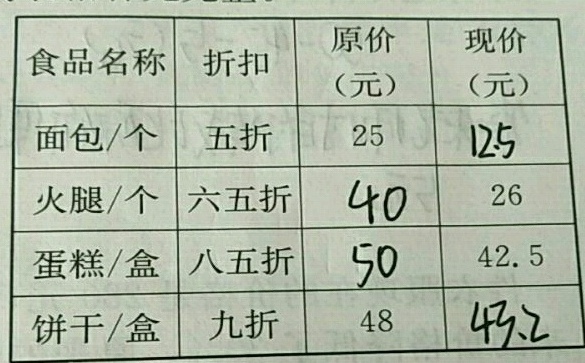 食品名称 折扣 原价（元） 现价（元）
面包/个 五折 25 12.5
火腿/个 六五折 40 26
蛋糕/盒 八五折 50 42.5
饼干/盒 九折 48 43.2